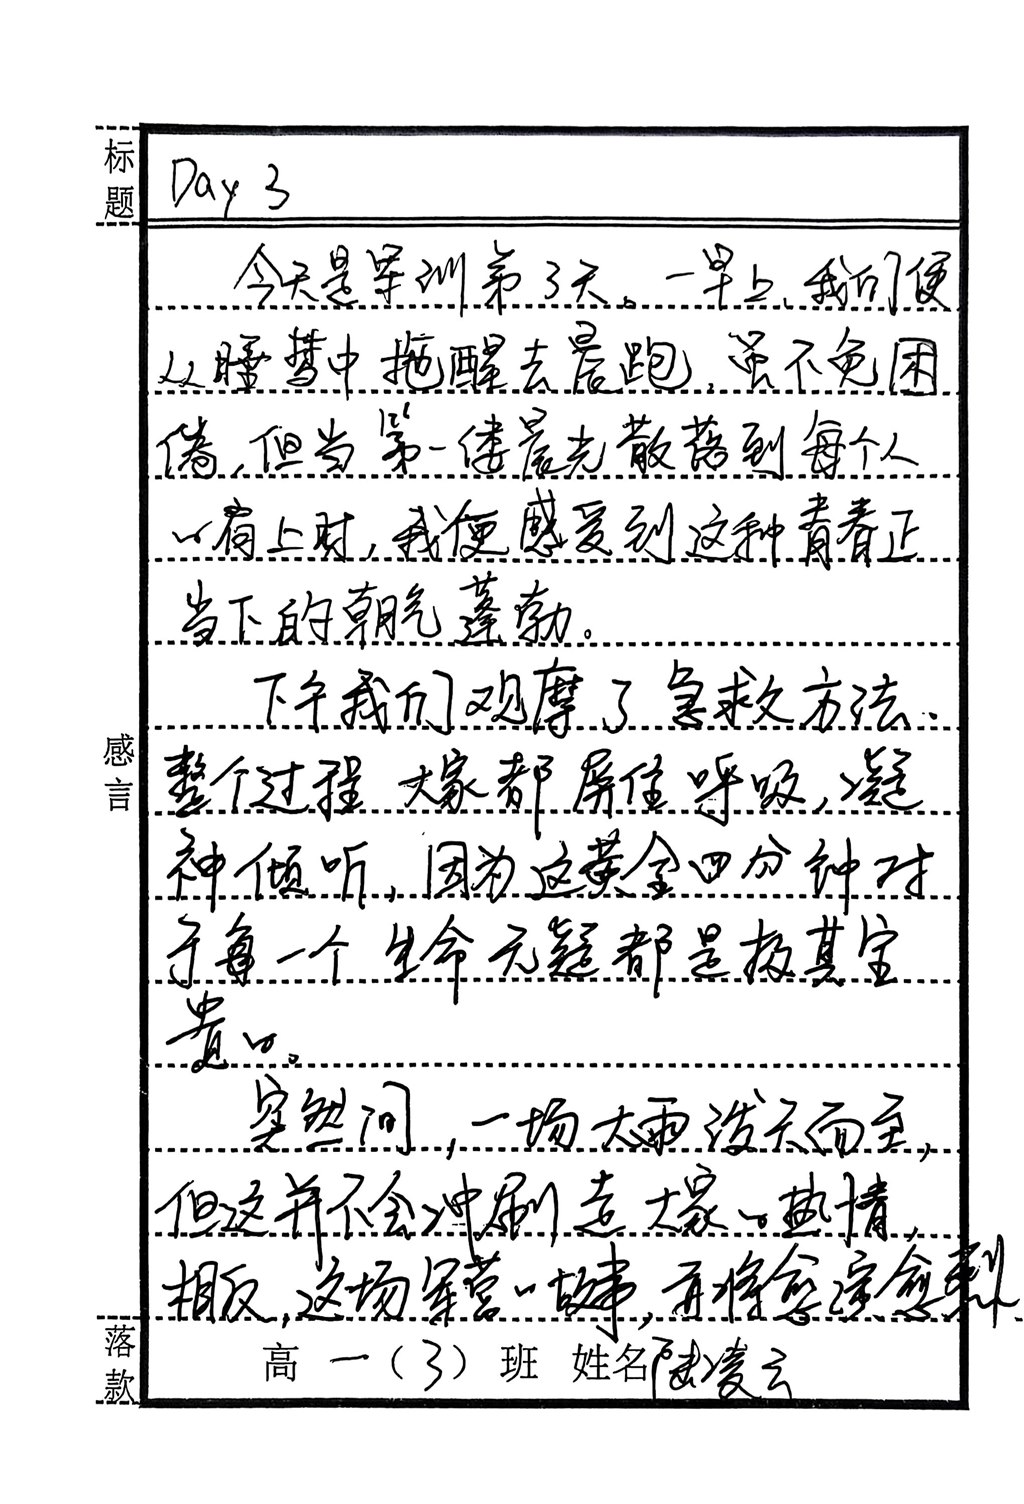 标题
Day 3
今天是军训第3天。一早上，我们便
从睡梦中拖醒去晨跑，虽不免困
倦，但当第一偻晨光散落到每个人
的肩上时，我便感受到这种青春正
当下的朝气蓬勃。
下午我们观摩了急救方法.
整个过程 大家都屏住呼吸，凝
神倾听，因为这黄金四分钟对
于每一个生命无疑都是极其宝
贵的。
突然间，一场大雨泼天而至，
但这并不会冲刷走大家的热情，
相反，这场军营的故事，将愈演愈烈.
感言
落款
高 一 （3）班 姓名 陆凌云